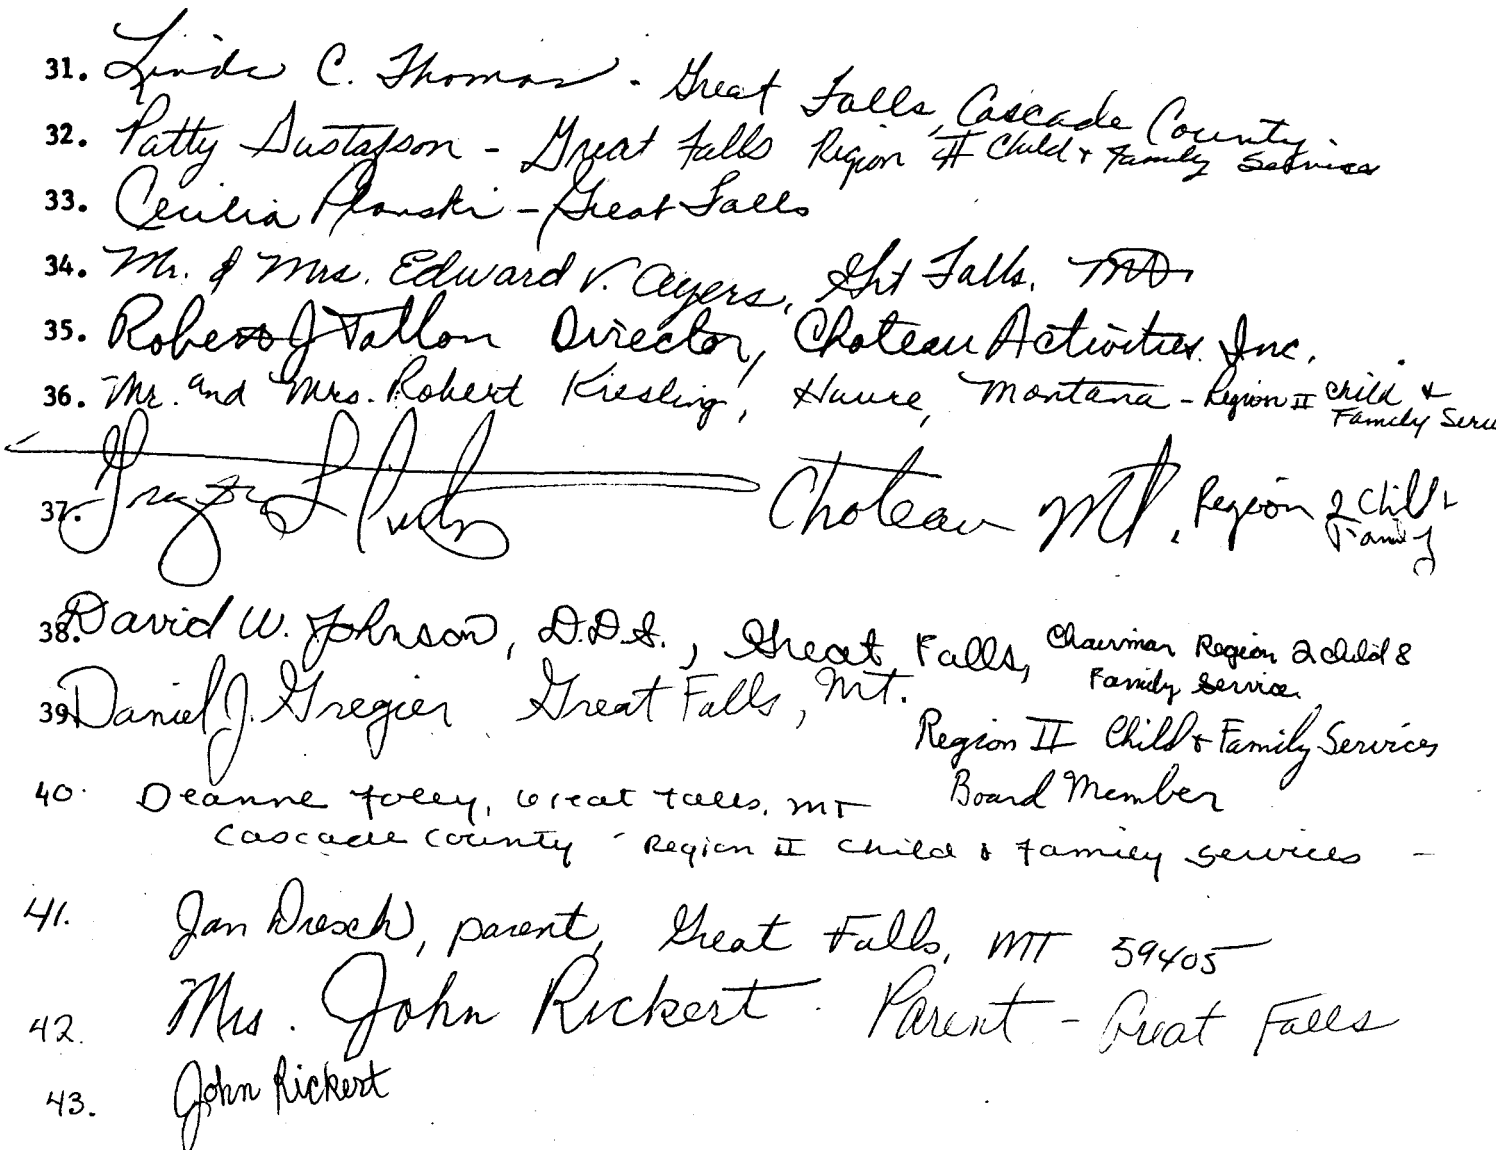 31. Linda C. Thomas - Great Falls, Cascade County.
32. Patty Gustafson - Great Falls Region II Child & Family Services
33. Cecilia - Great Falls
34. Mr. & Mrs. Edward V. Ayers, Grt Falls, Mt.
35. Robert J Tallon Director, Choteau Activities Inc.
36. Mr. and Mrs. Robert Kiesling, Havre, Montana - Region II Child &
Family Serv
37. Choteau MT, Region 2 Child &
Family
38. David W. Johnson, D.D.S., Great Falls, Chairman Region 2 Child &
Family Service
39. Daniel J. Gregier Great Falls, Mt.
Region II Child & Family Services
Board Member
40. Deanne Foley, Great Falls, MT
Cascade County - Region II Child & Family Services -
41. Jan Dresch, parent, Great Falls, MT 59405
42. Mrs. John Rickert. Parent - Great Falls
43. John Rickert